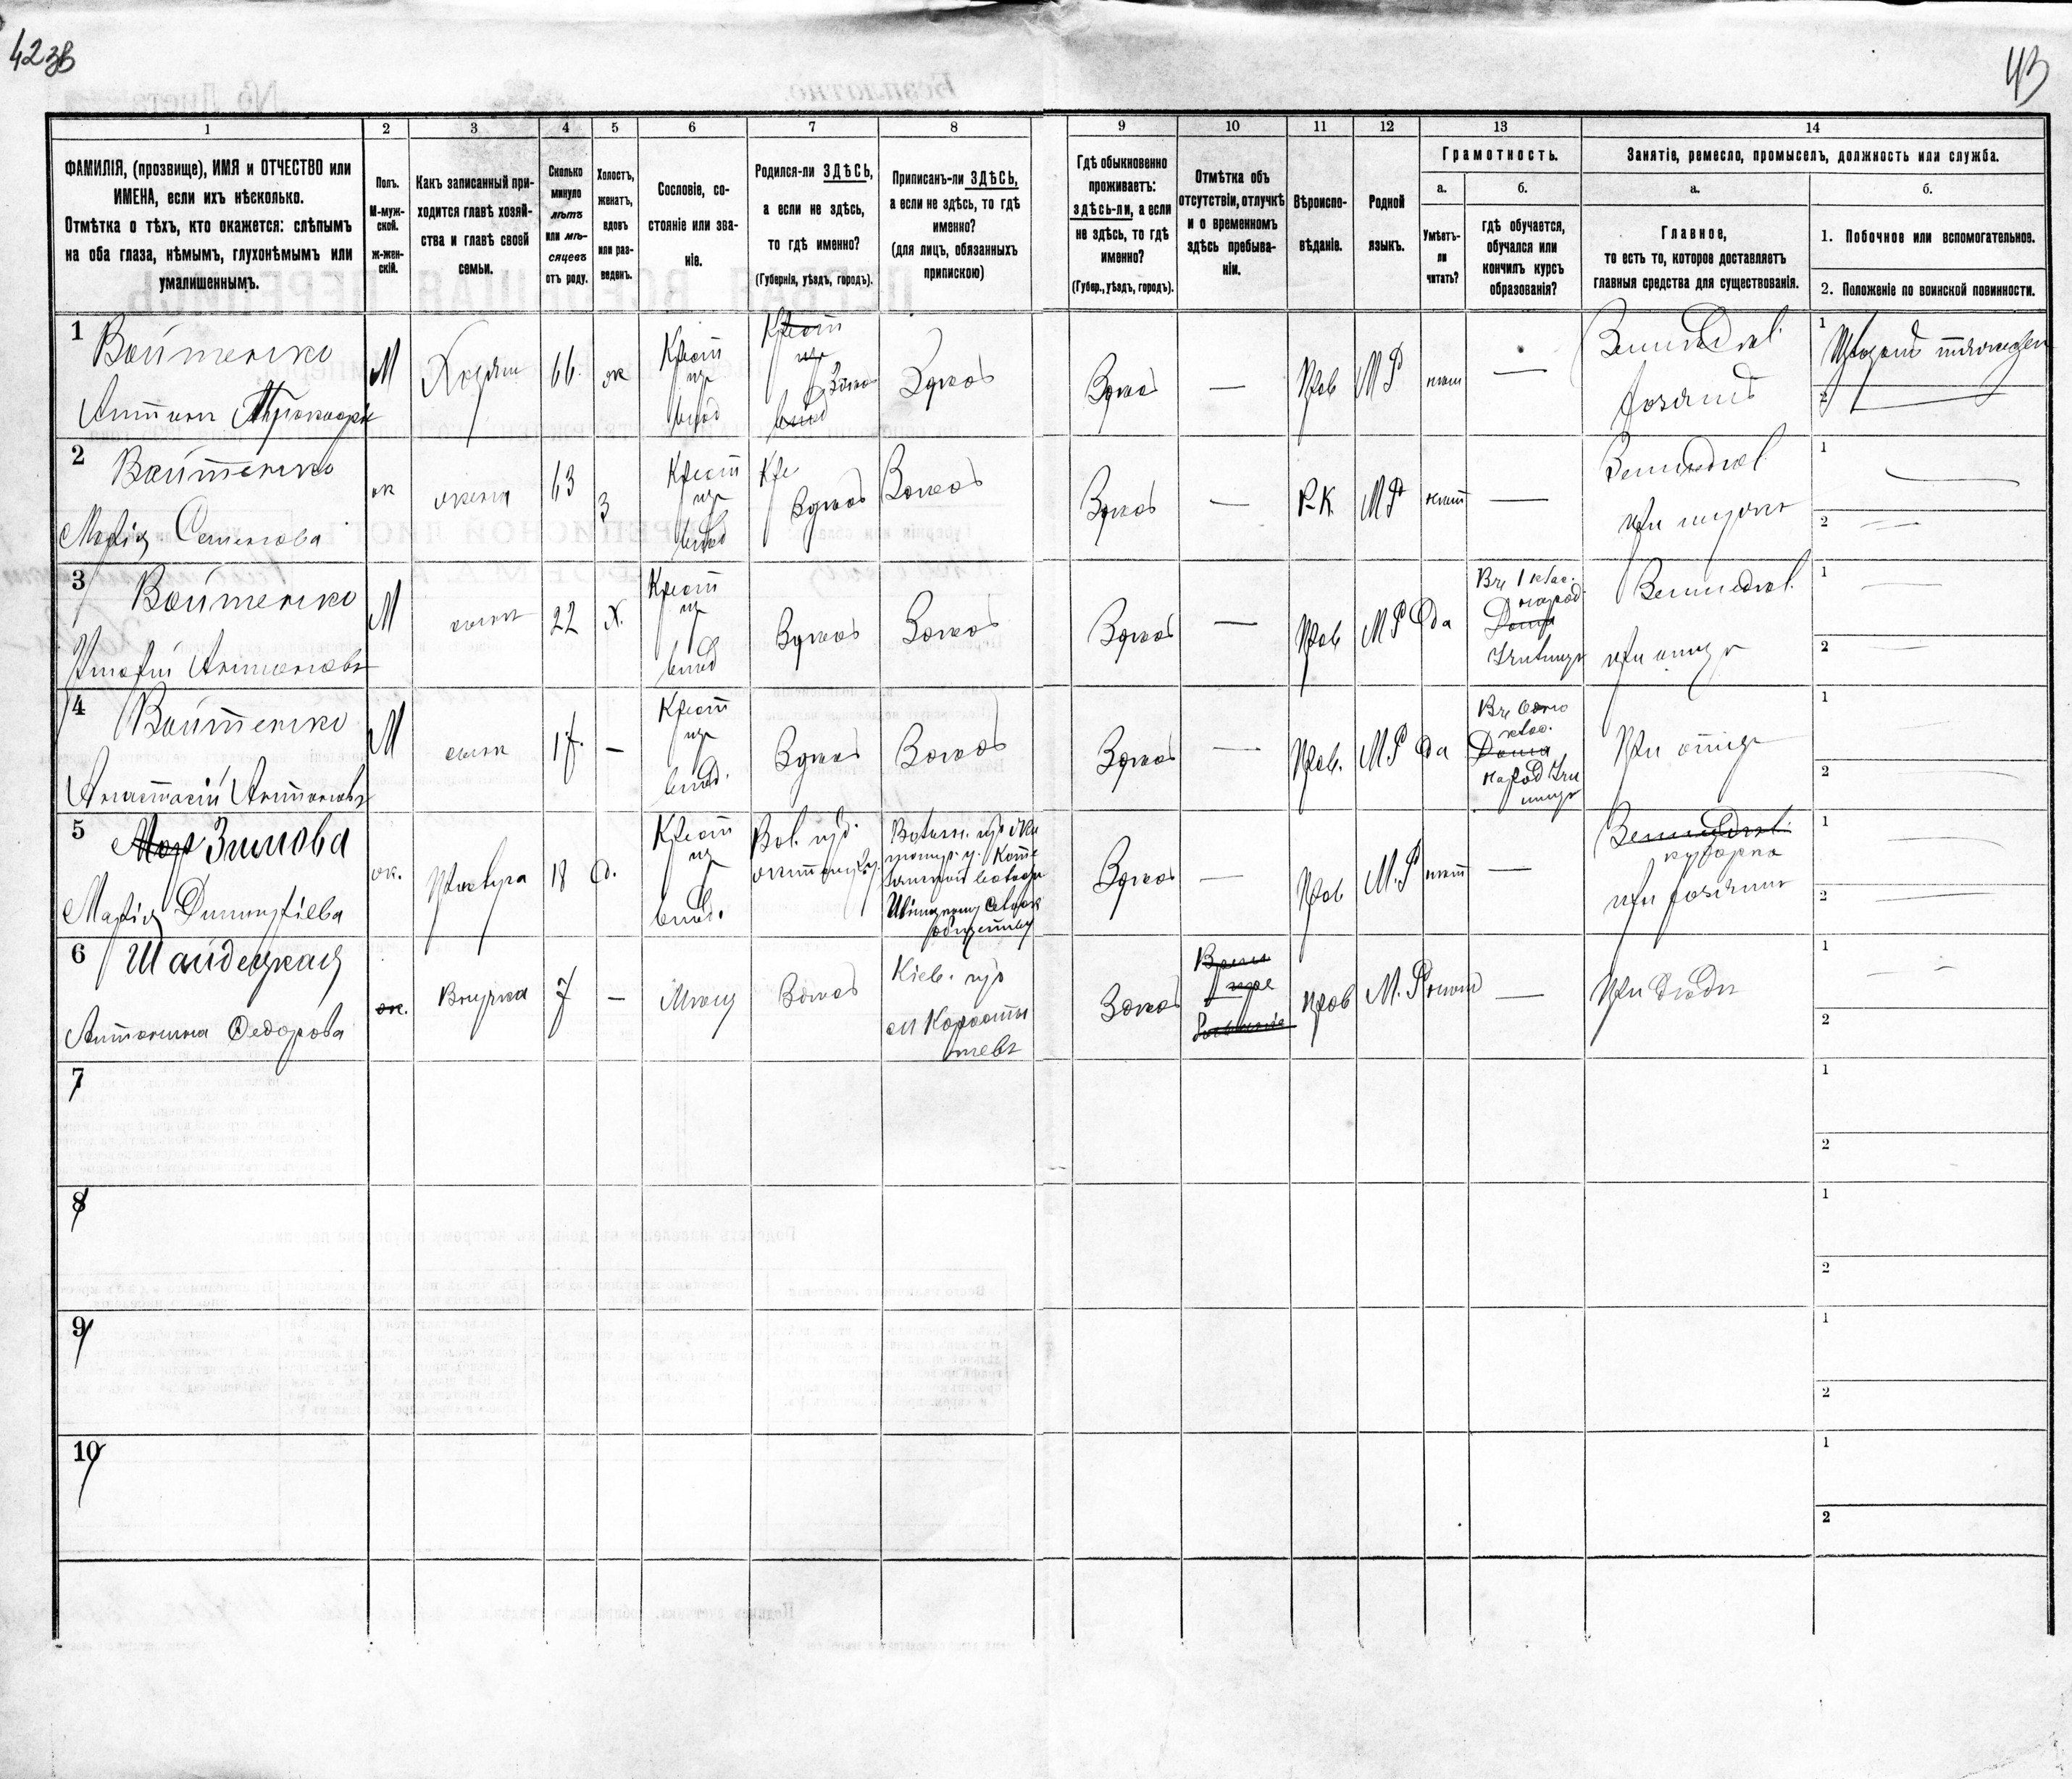 42 зв
43
1
2
3
4
5
6
7
8
9
10
11
12
13
14
ФАМИЛІЯ, (прозвище), ИМЯ и ОТЧЕСТВО или
ИМЕНА, если ихъ нѣсколько.
Отмѣтка о тѣхъ, кто окажется: слѣпымъ
на оба глаза, нѣмымъ, глухонѣмымъ или
умалишеннымъ.
Полъ.
М-муж-
ской.
Ж-жен-
скій.
Какъ записанный при-
ходится главѣ хозяй-
ства и главѣ своей
семьи.
Сколько
минуло
лѣтъ
или мѣ-
сяцевъ
отъ роду.
Холостъ,
женатъ,
вдовъ
или раз-
веденъ.
Сословіе, со-
стояніе или зва-
ніе.
Родился-ли ЗДѢСЬ,
а если не здѣсь,
то гдѣ именно?
(Губернія, уѣздъ, городъ).
Приписанъ-ли ЗДѢСЬ,
а если не здѣсь, то гдѣ
именно?
(для лицъ, обязанныхъ
припискою)
Гдѣ обыкновенно
проживаетъ:
здѣсь-ли, а если
не здѣсь, то гдѣ
именно?
(Губер., уѣздъ, городъ).
Отмѣтка объ
отсутствіи, отлучкѣ
и о временномъ
здѣсь пребыва-
ніи.
Вѣроиспо-
вѣданіе.
Родной
языкъ.
Грамотность.
а.
Умѣетъ-
ли
читать?
б.
гдѣ обучается,
обучался или
кончилъ курсъ
образованія?
Занятіе, ремесло, промыселъ, должность или служба.
а.
Главное,
то есть то, которое доставляетъ
главныя средства для существованія.
б.
1. Побочное или вспомогательное.
2. Положеніе по воинской повинности.
1
Войтенко
Антонъ
М
Хозяин
66
ж
Крест
из
влад
Здесь
Здесь
Здесь
—
Прав
М Р
нет
—
Земледел.
хозяин
1
2
2
Войтенко
Марія Семенова
ж
жена
63
З
Крест
из
влад
Здесь
Здесь
Здесь
—
Р-К.
М Р
нет
—
Земледел.
при мужѣ
1
2
3
Войтенко
Антоновъ
М
сынъ
22
Х.
Крест
из
влад
Здесь
Здесь
Здесь
—
Прав
М Р
да
Въ 1 клас.
народ.
Дома
Училищѣ
Земледел.
при отцѣ
1
2
4
Войтенко
Анастасій Антоновъ
М
сынъ
17.
—
Крест
из
влад.
Здесь
Здесь
Здесь
—
Прав.
М Р
да
Въ Одно
клас.
Дома
народ Учи
лищѣ
При отцѣ
1
2
5
Мар Зимова
Марія Димитріева
ж.
18
д.
Крест
из
влад.
Вол. губ.
Волын. губ. Жи
обществу
Здесь
—
Прав
М. Р
нет
—
Земледел.
кухарка
при хозяинѣ
1
2
6
Шайдецкая
Антонина Федорова
ж.
Внучка
7
—
Мѣщ
Здесь
Кіев. губ
м Коросты
шевъ
Здесь
прав
М. Р
нет
—
При дѣдѣ
1
2
7
1
2
8
1
2
9
1
2
10
1
2